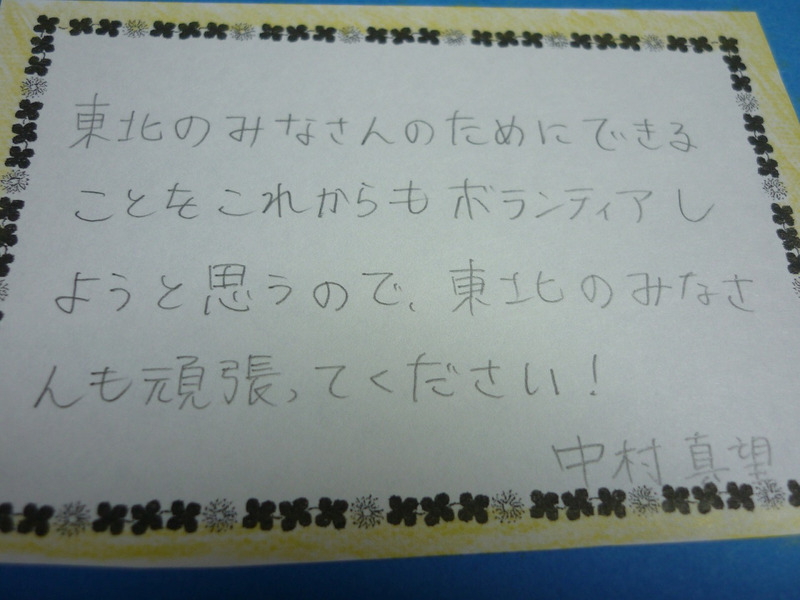 東北のみなさんのためにできる
ことをこれからもボランティアし
ようと思うので、東北のみなさ
んも頑張ってください!
中村真望